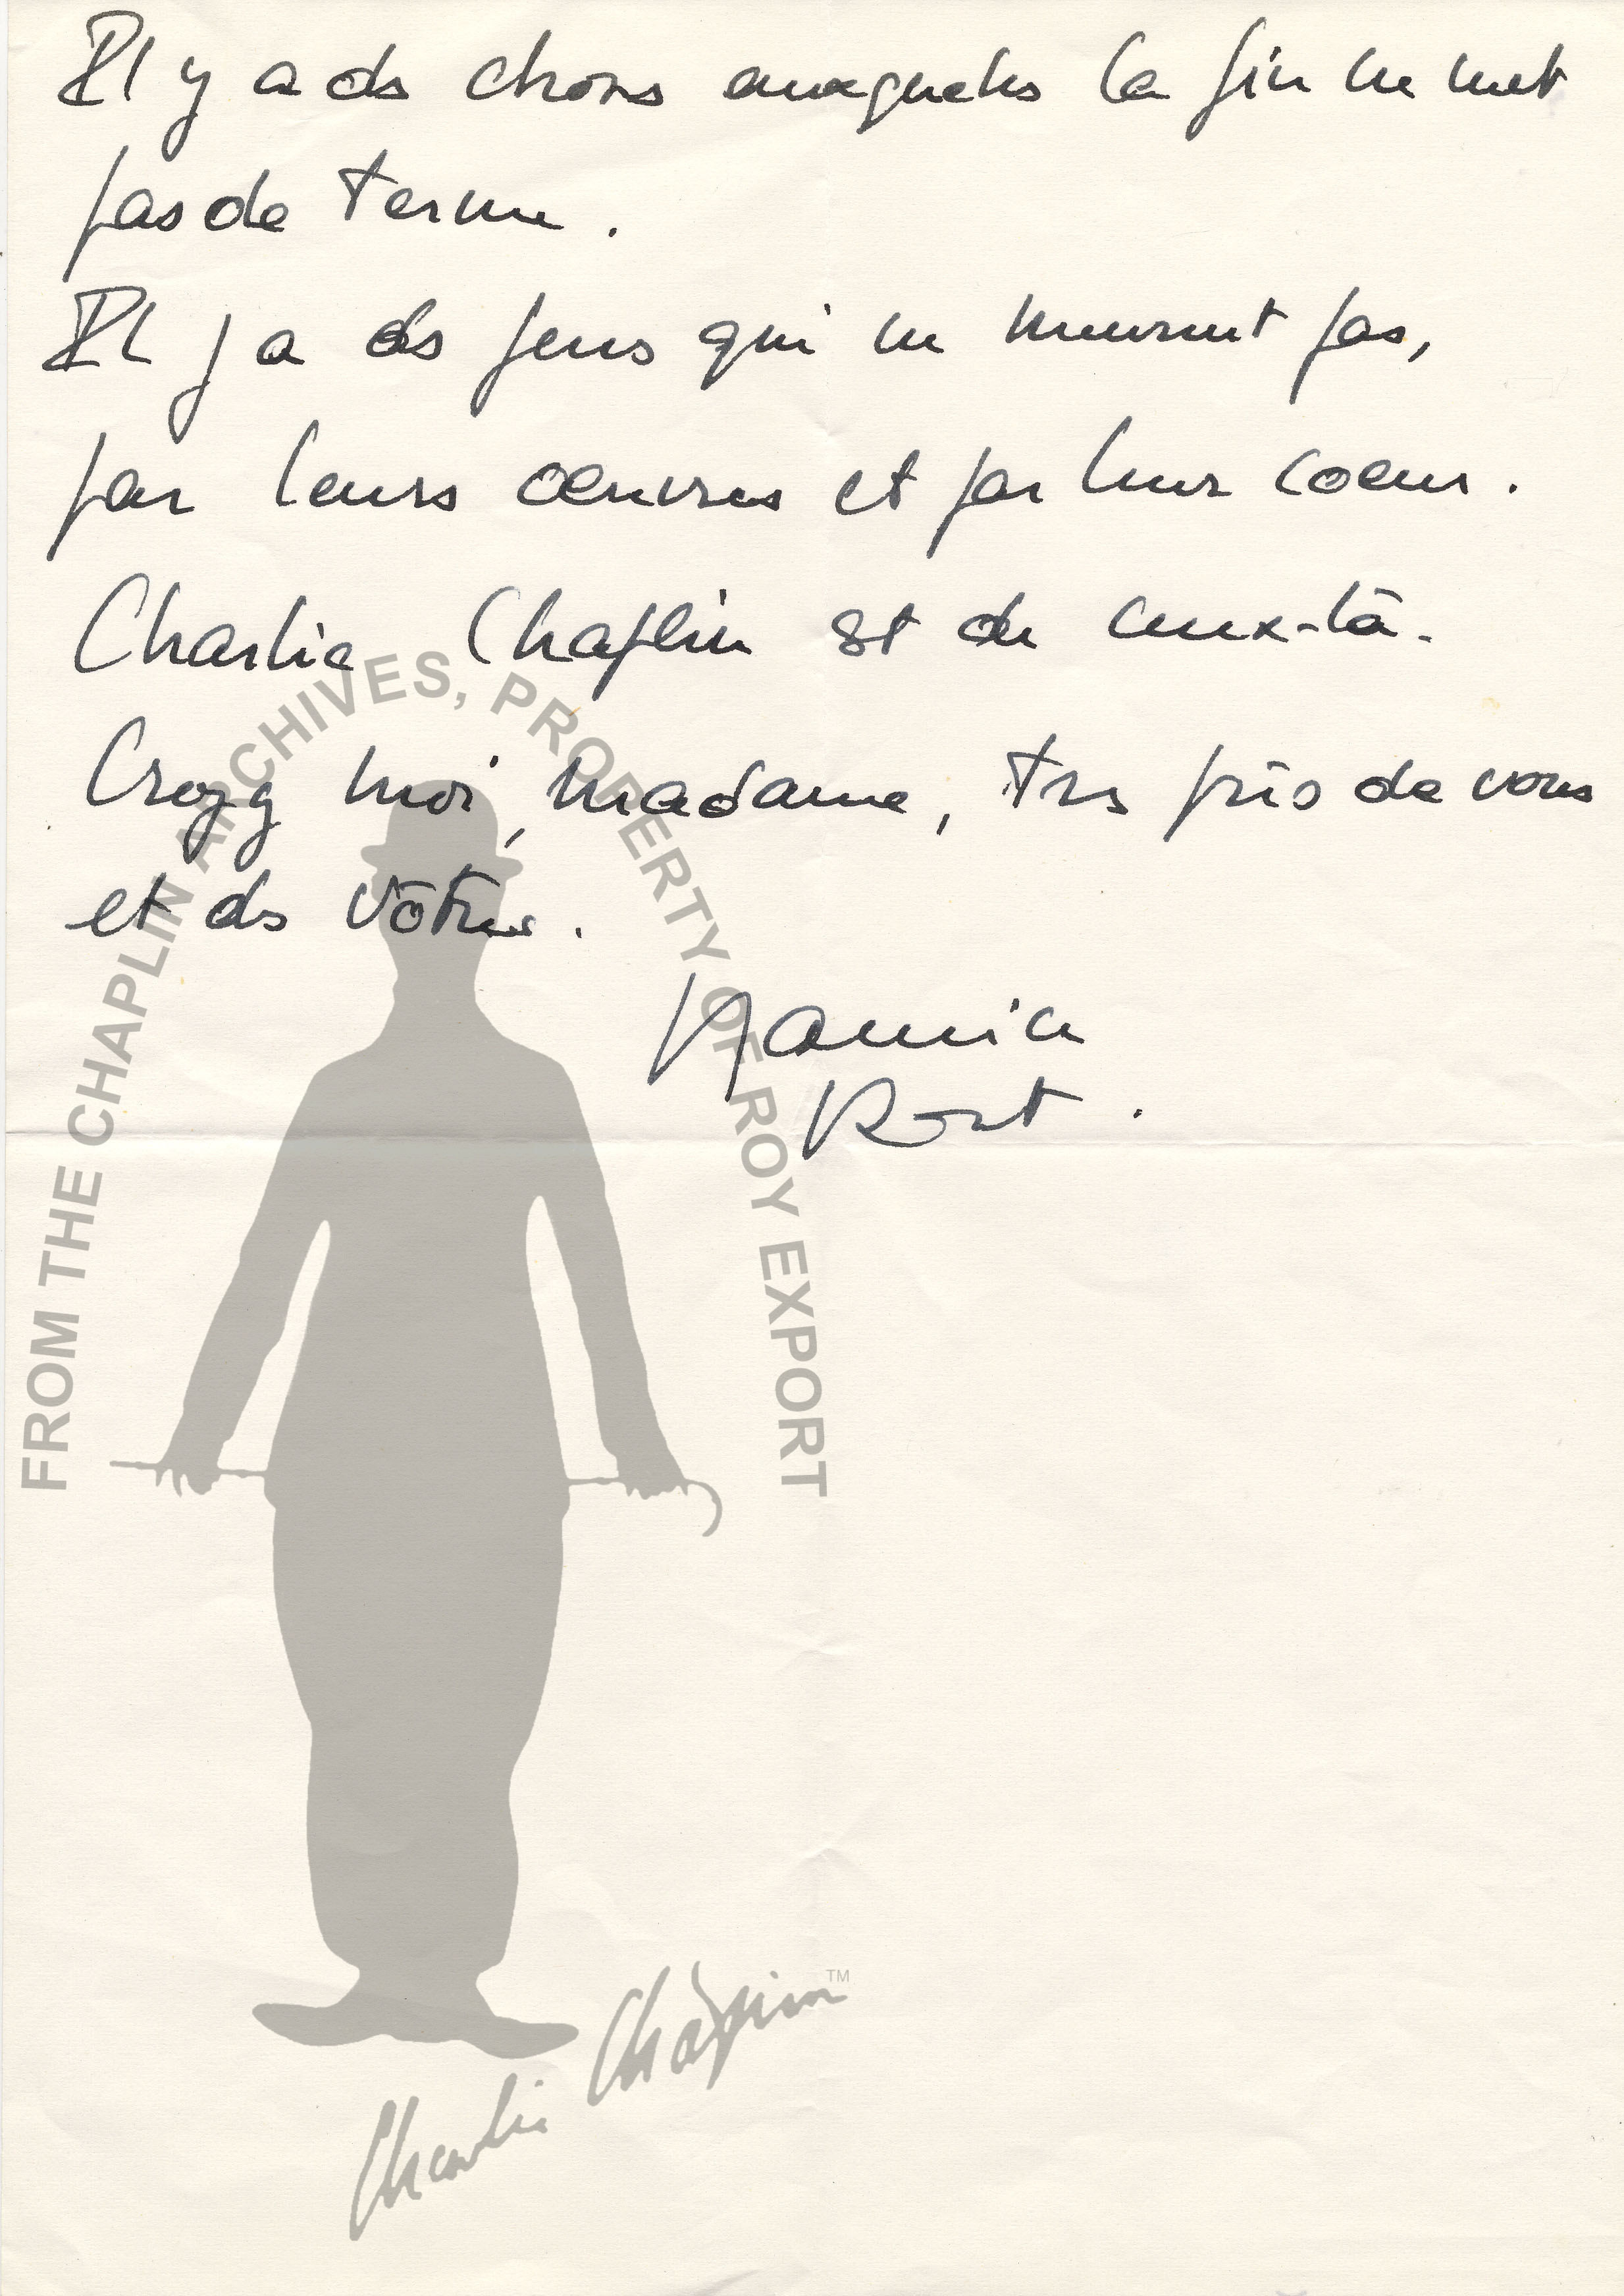 Il y a des choses auxquelles la fin ne met
pas de terme.
Il y a des gens qui ne meurent pas,
par leurs œuvres et par leur cœur.
Charlie Chaplin est de ceux-là.
Croyez moi, madame, très près de vous
et des vôtres.
FROM THE CHAPLIN ARCHIVES, PROPERTY OF ROY EXPORT
Charlie Chaplin TM